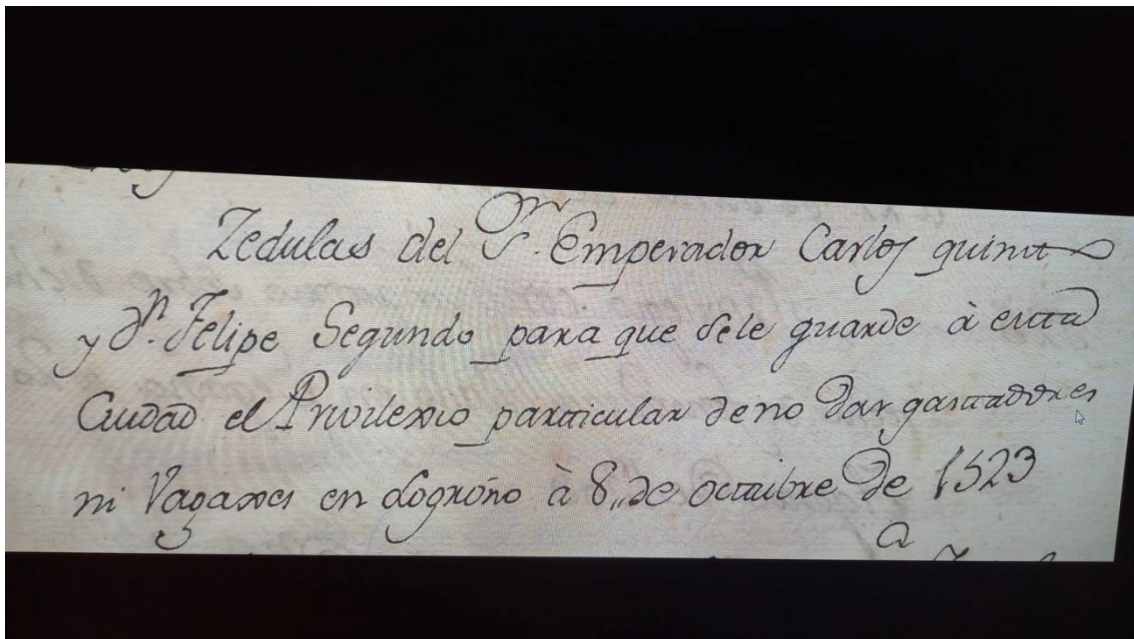 Zedulas del Sr. Emperador Carlos quinto
y Dn. Felipe Segundo para que sele guarde à esta
Ciudad el Privilexio particular de no dar gastadores
ni Vagaxes en Logroño à 8,, de octubre de 1523